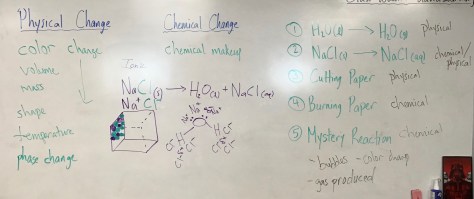 Physical Change
color change
volume
mass
shape
temperature
phase change
Chemical Change
chemical makeup
Ionic
NaCl(s) → H₂O(l) + NaCl(aq)
Na⁺Cl⁻
① H₂O(s) → H₂O(l) physical
② NaCl(s) → NaCl(aq) chemical/physical
③ Cutting Paper physical
④ Burning Paper chemical
⑤ Mystery Reaction chemical
- bubbles - color change
- gas produced